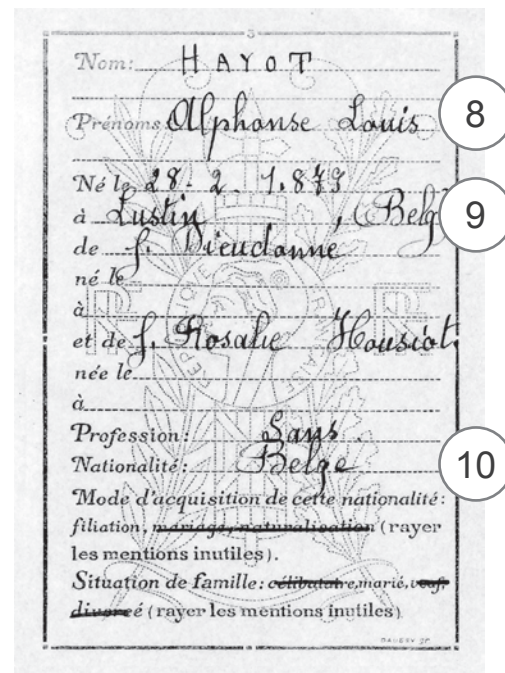 3
Nom: HAYOT
Prénoms: Alphonse Louis
8
Né le 28-2. 1.879
à Lustin, (Belg
9
de f. Dieudonne
né le
à
et de f. Rosalie Housiot.
née le
à
Profession: Sans
Nationalité: Belge
10
Mode d'acquisition de cette nationalité:
filiation, mariage, naturalisation (rayer
les mentions inutiles).
Situation de famille: célibataire, marié, veuf,
divorcé (rayer les mentions inutiles)
RF